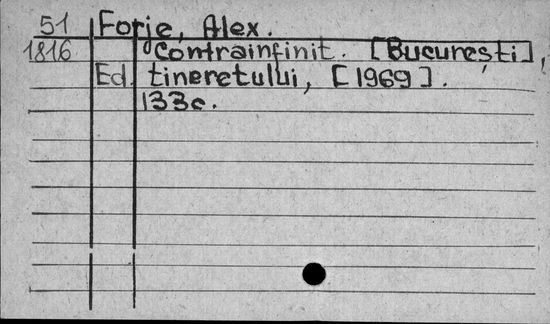 51 Forje, Alex.
1816 Contrainfinit. [București],
Ed. tineretului, [1969].
133c.